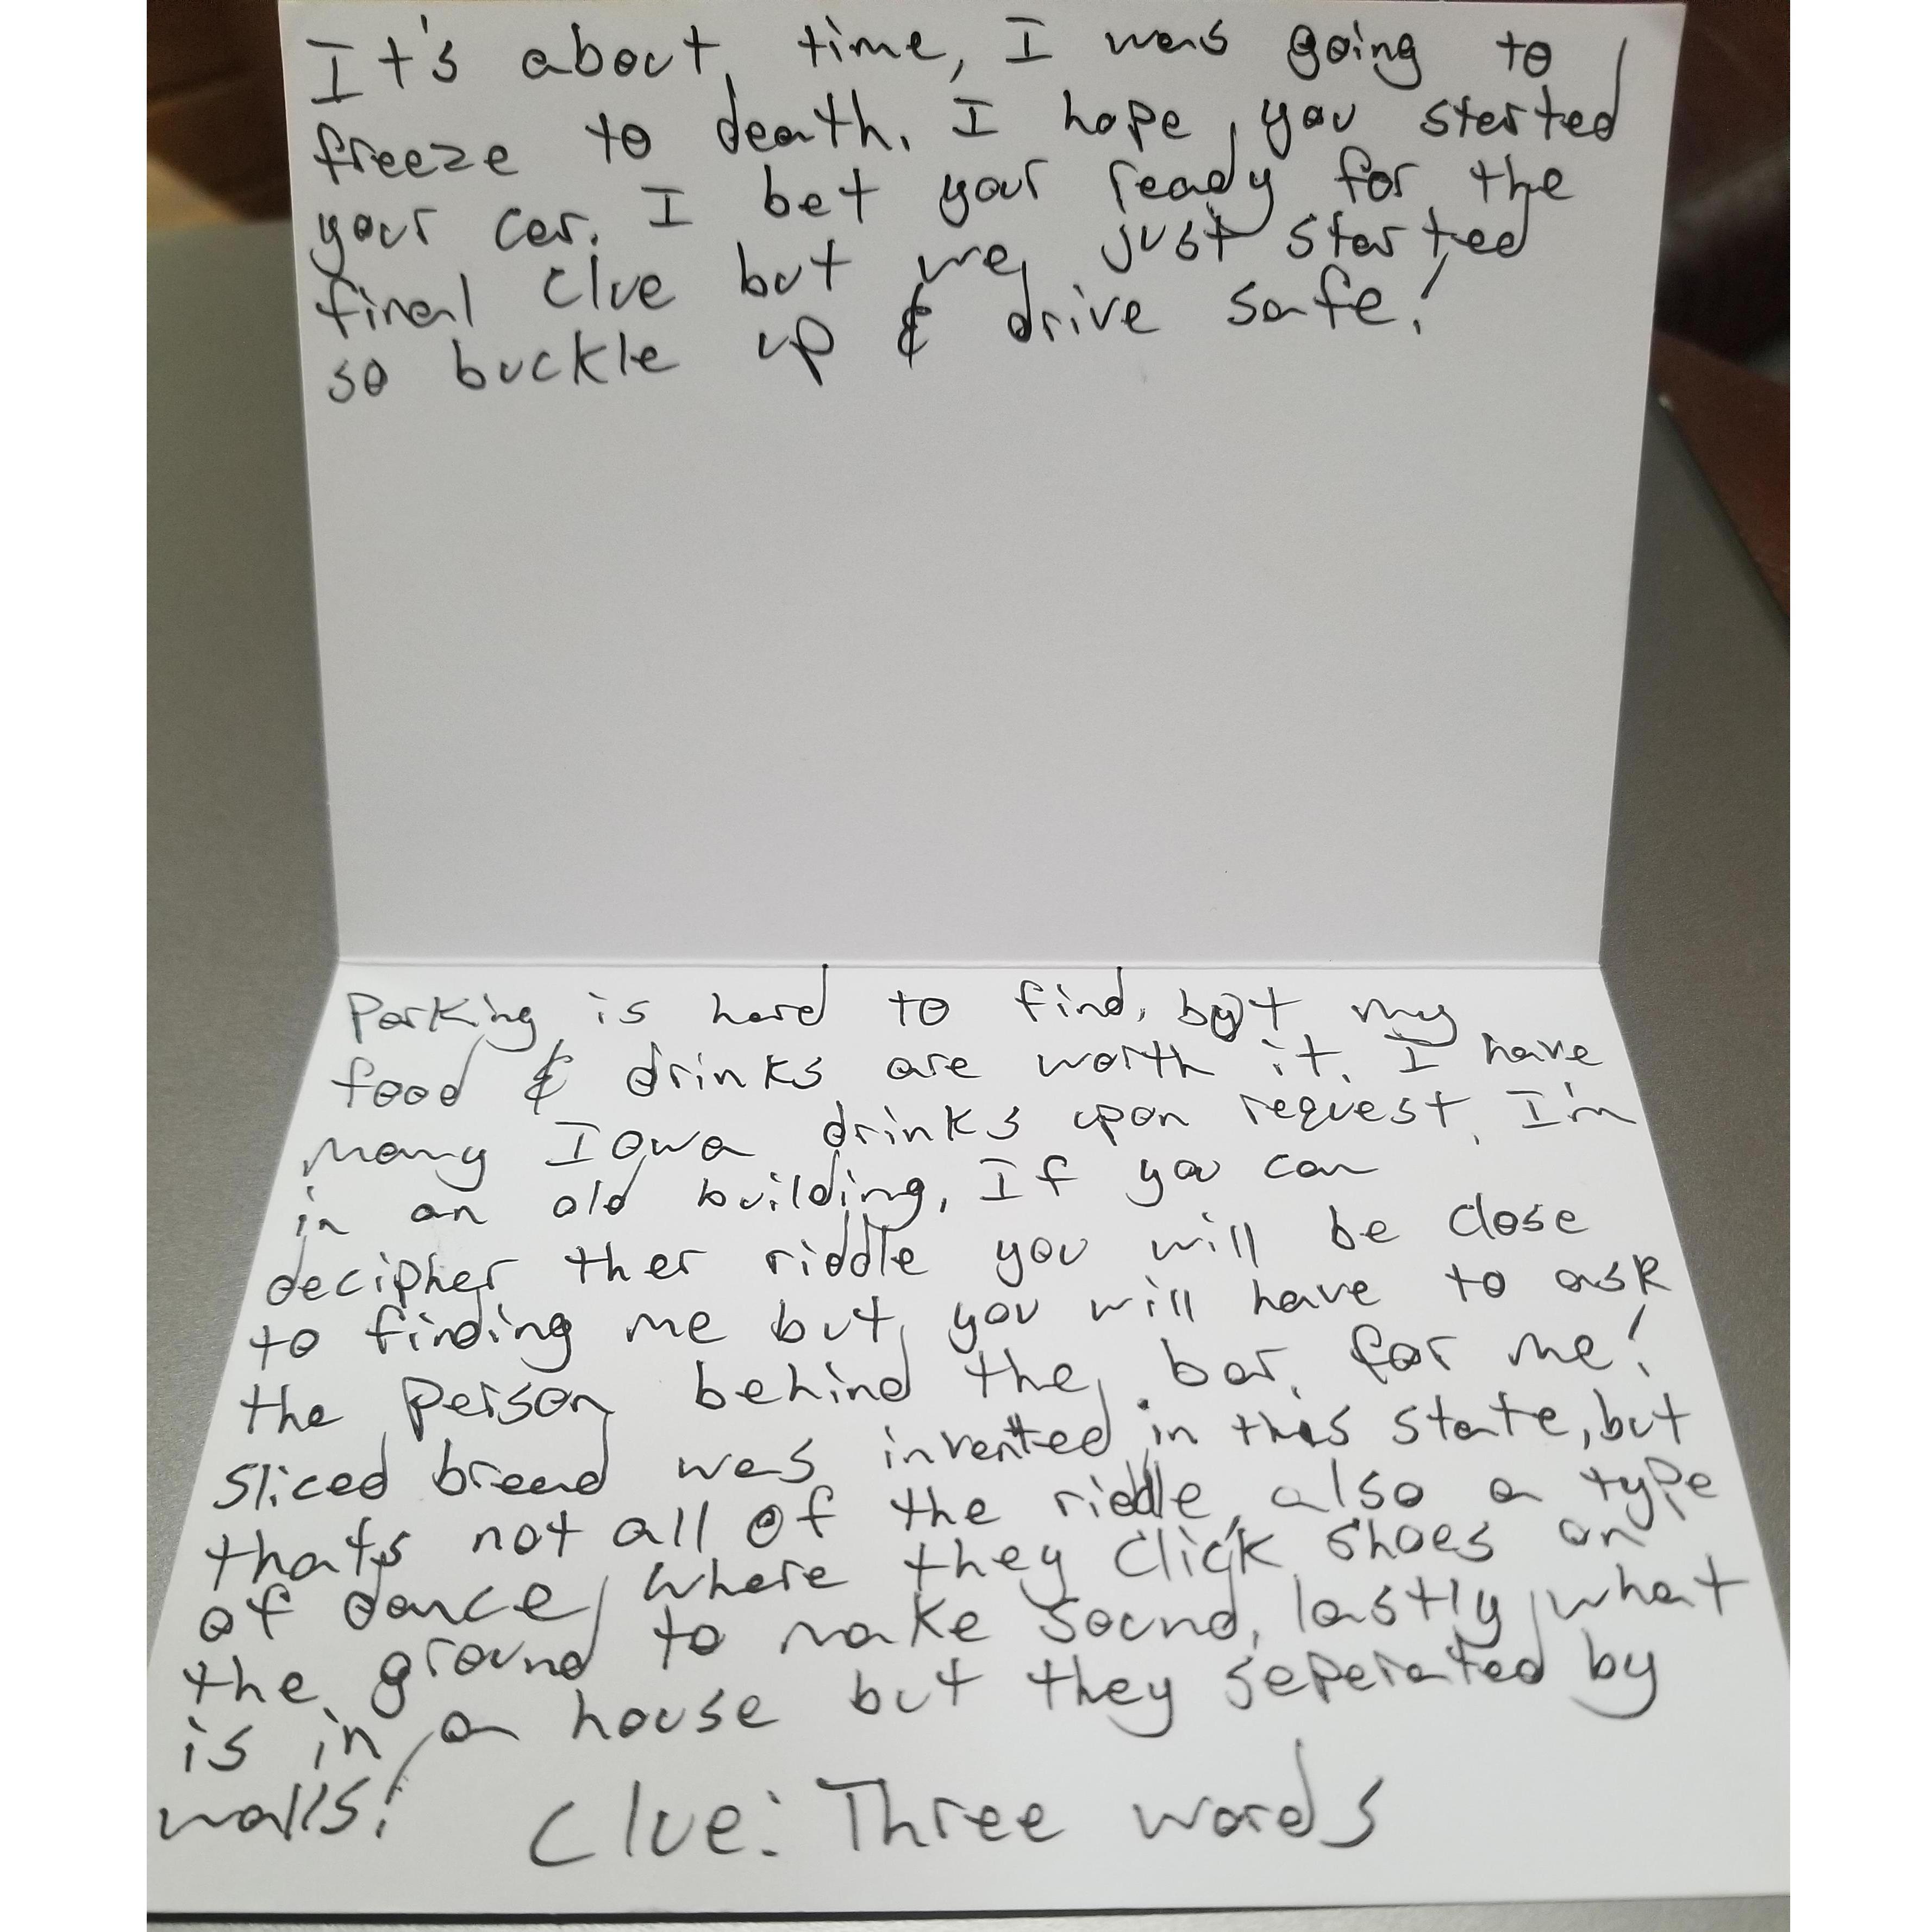 It's about time, I was going to
freeze to death. I hope you started
your car. I bet your ready for the
final clue but we just started
so buckle up & drive safe!
Parking is hard to find, but my
food & drinks are worth it. I have
many Iowa drinks upon request. I'm
in an old building, If you can
decipher ther riddle you will be close
to finding me but you will have to ask
the person behind the bar for me!
Sliced bread was invented in this state, but
thats not all of the riddle, also a type
of dance where they click shoes on
the ground to make sound, lastly what
is in a house but they seperated by
walls! Clue: Three words